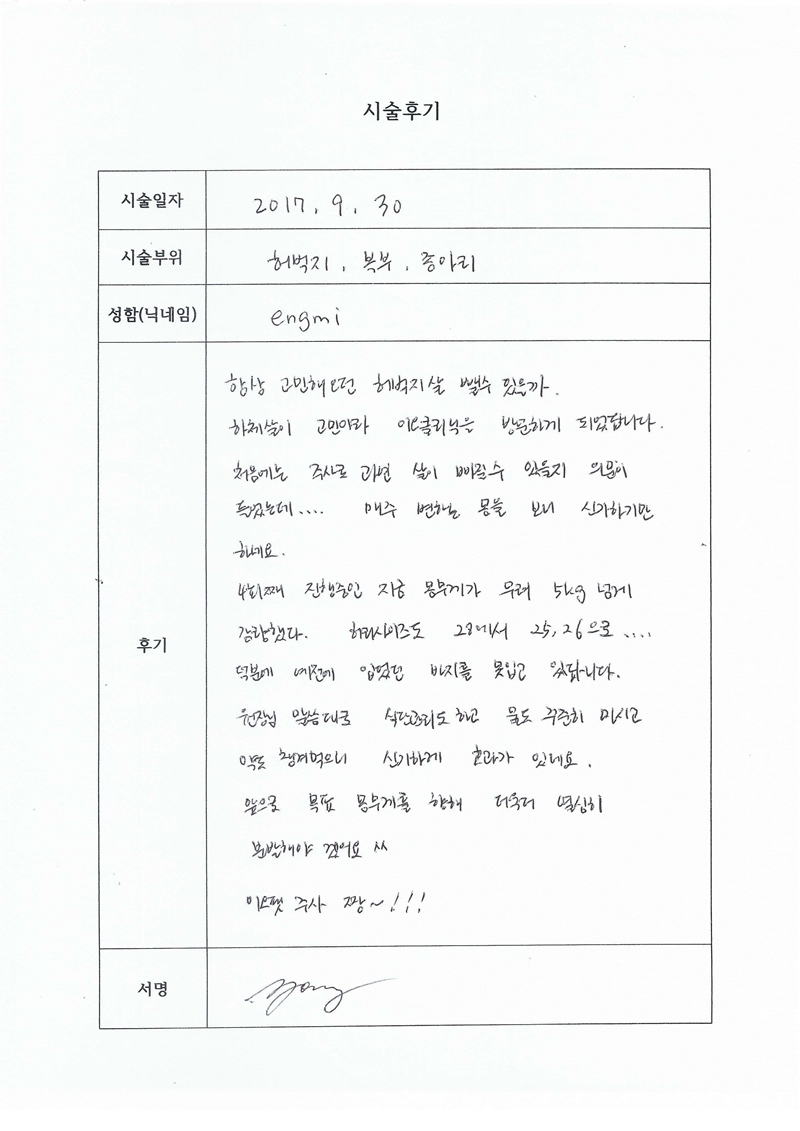 시술후기
시술일자 2017. 9. 30
시술부위 허벅지, 복부, 종아리
성함(닉네임) engmi
후기
항상 고민해오던 허벅지살 뺄수 있을까.
하체살이 고민이라 이오클리닉을 방문하게 되었답니다.
처음에는 주사로 과연 살이 빠질수 있을지 의문이
들었는데.... 매주 변하는 몸을 보니 신기하기만
하네요.
4회째 진행중인 지금 몸무게가 무려 5kg 넘게
감량했다. 허리사이즈도 28에서 25,26으로....
덕분에 예전에 입었던 바지를 못입고 있답니다.
원장님 말씀대로 식단조리도하고 물도 꾸준히 마시고
약도 챙겨먹으니 신기하게 효과가 있네요.
앞으로 목표 몸무게를 향해 더욱더 열심히
분발해야 겠어요 ^^
이오팻 주사 짱~!!!
서명